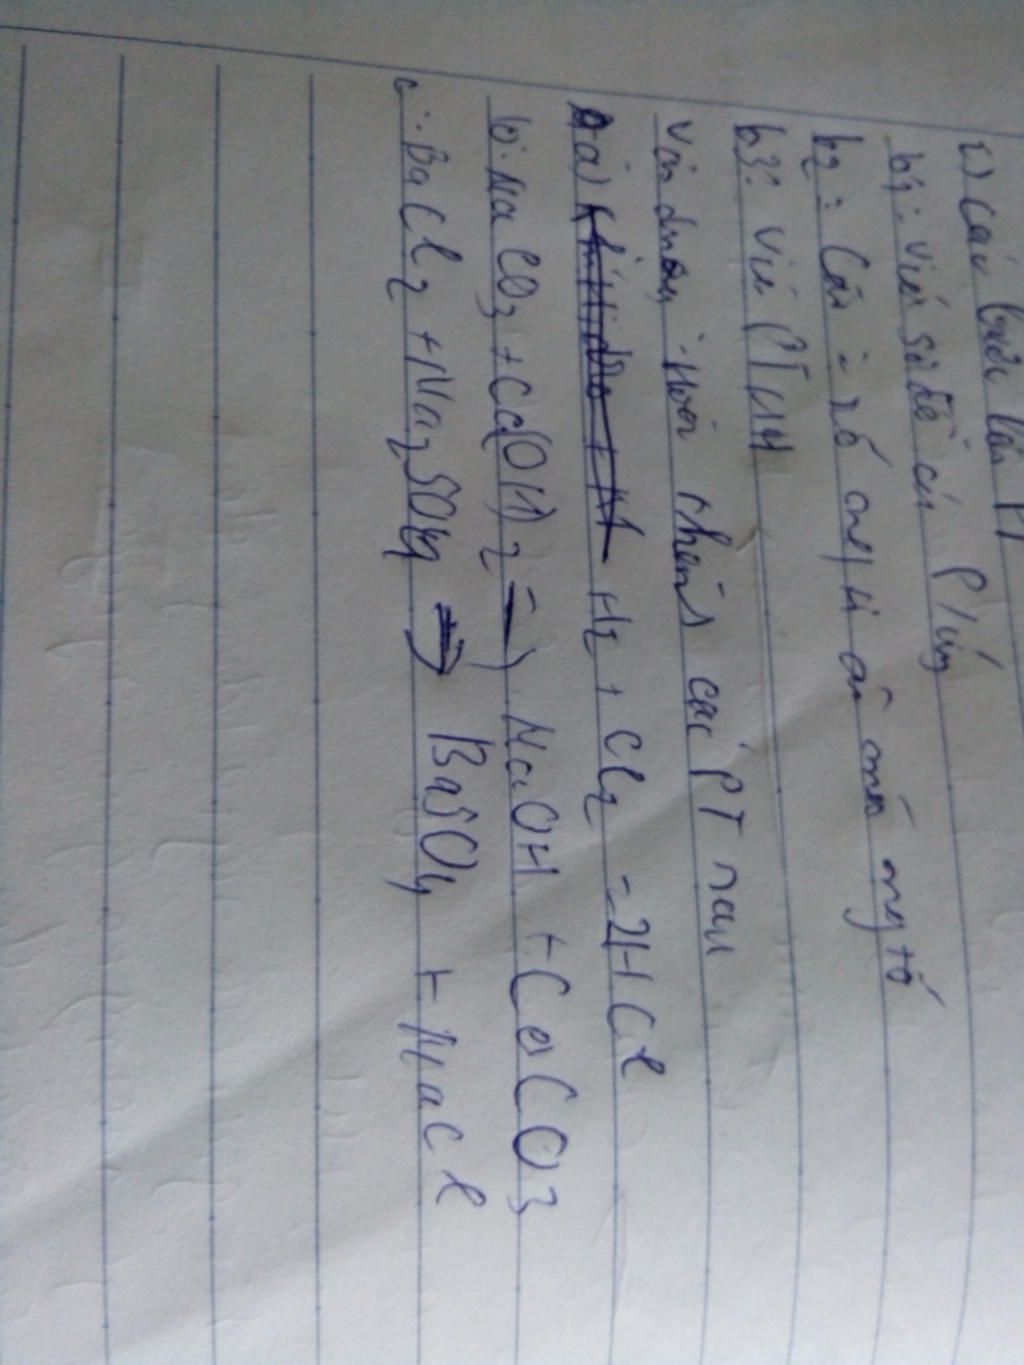 2) Các bước lập PT
b1: Viết sơ đồ của P/ứng
b2: Cân = số ng/tử của mỗi ng/tố
b3: Viết PTHH
Vận dụng: Hoàn thành các PT sau
a) H2 + Cl2 - 2HCl
b. Na CO3 + Ca(OH)2 => NaOH + CaCO3
c. BaCl2 + Na2SO4 → BaSO4 + NaCl